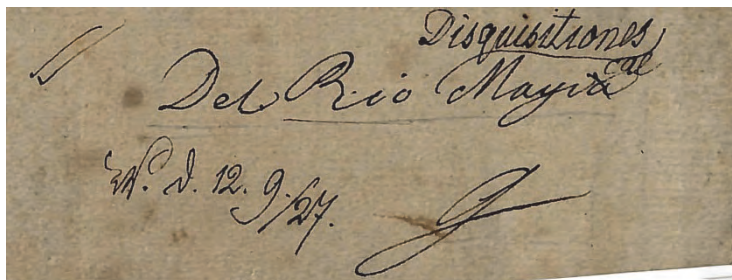 Disquisitiones
Del Rio Magicae
W. d. 12. 9./27.